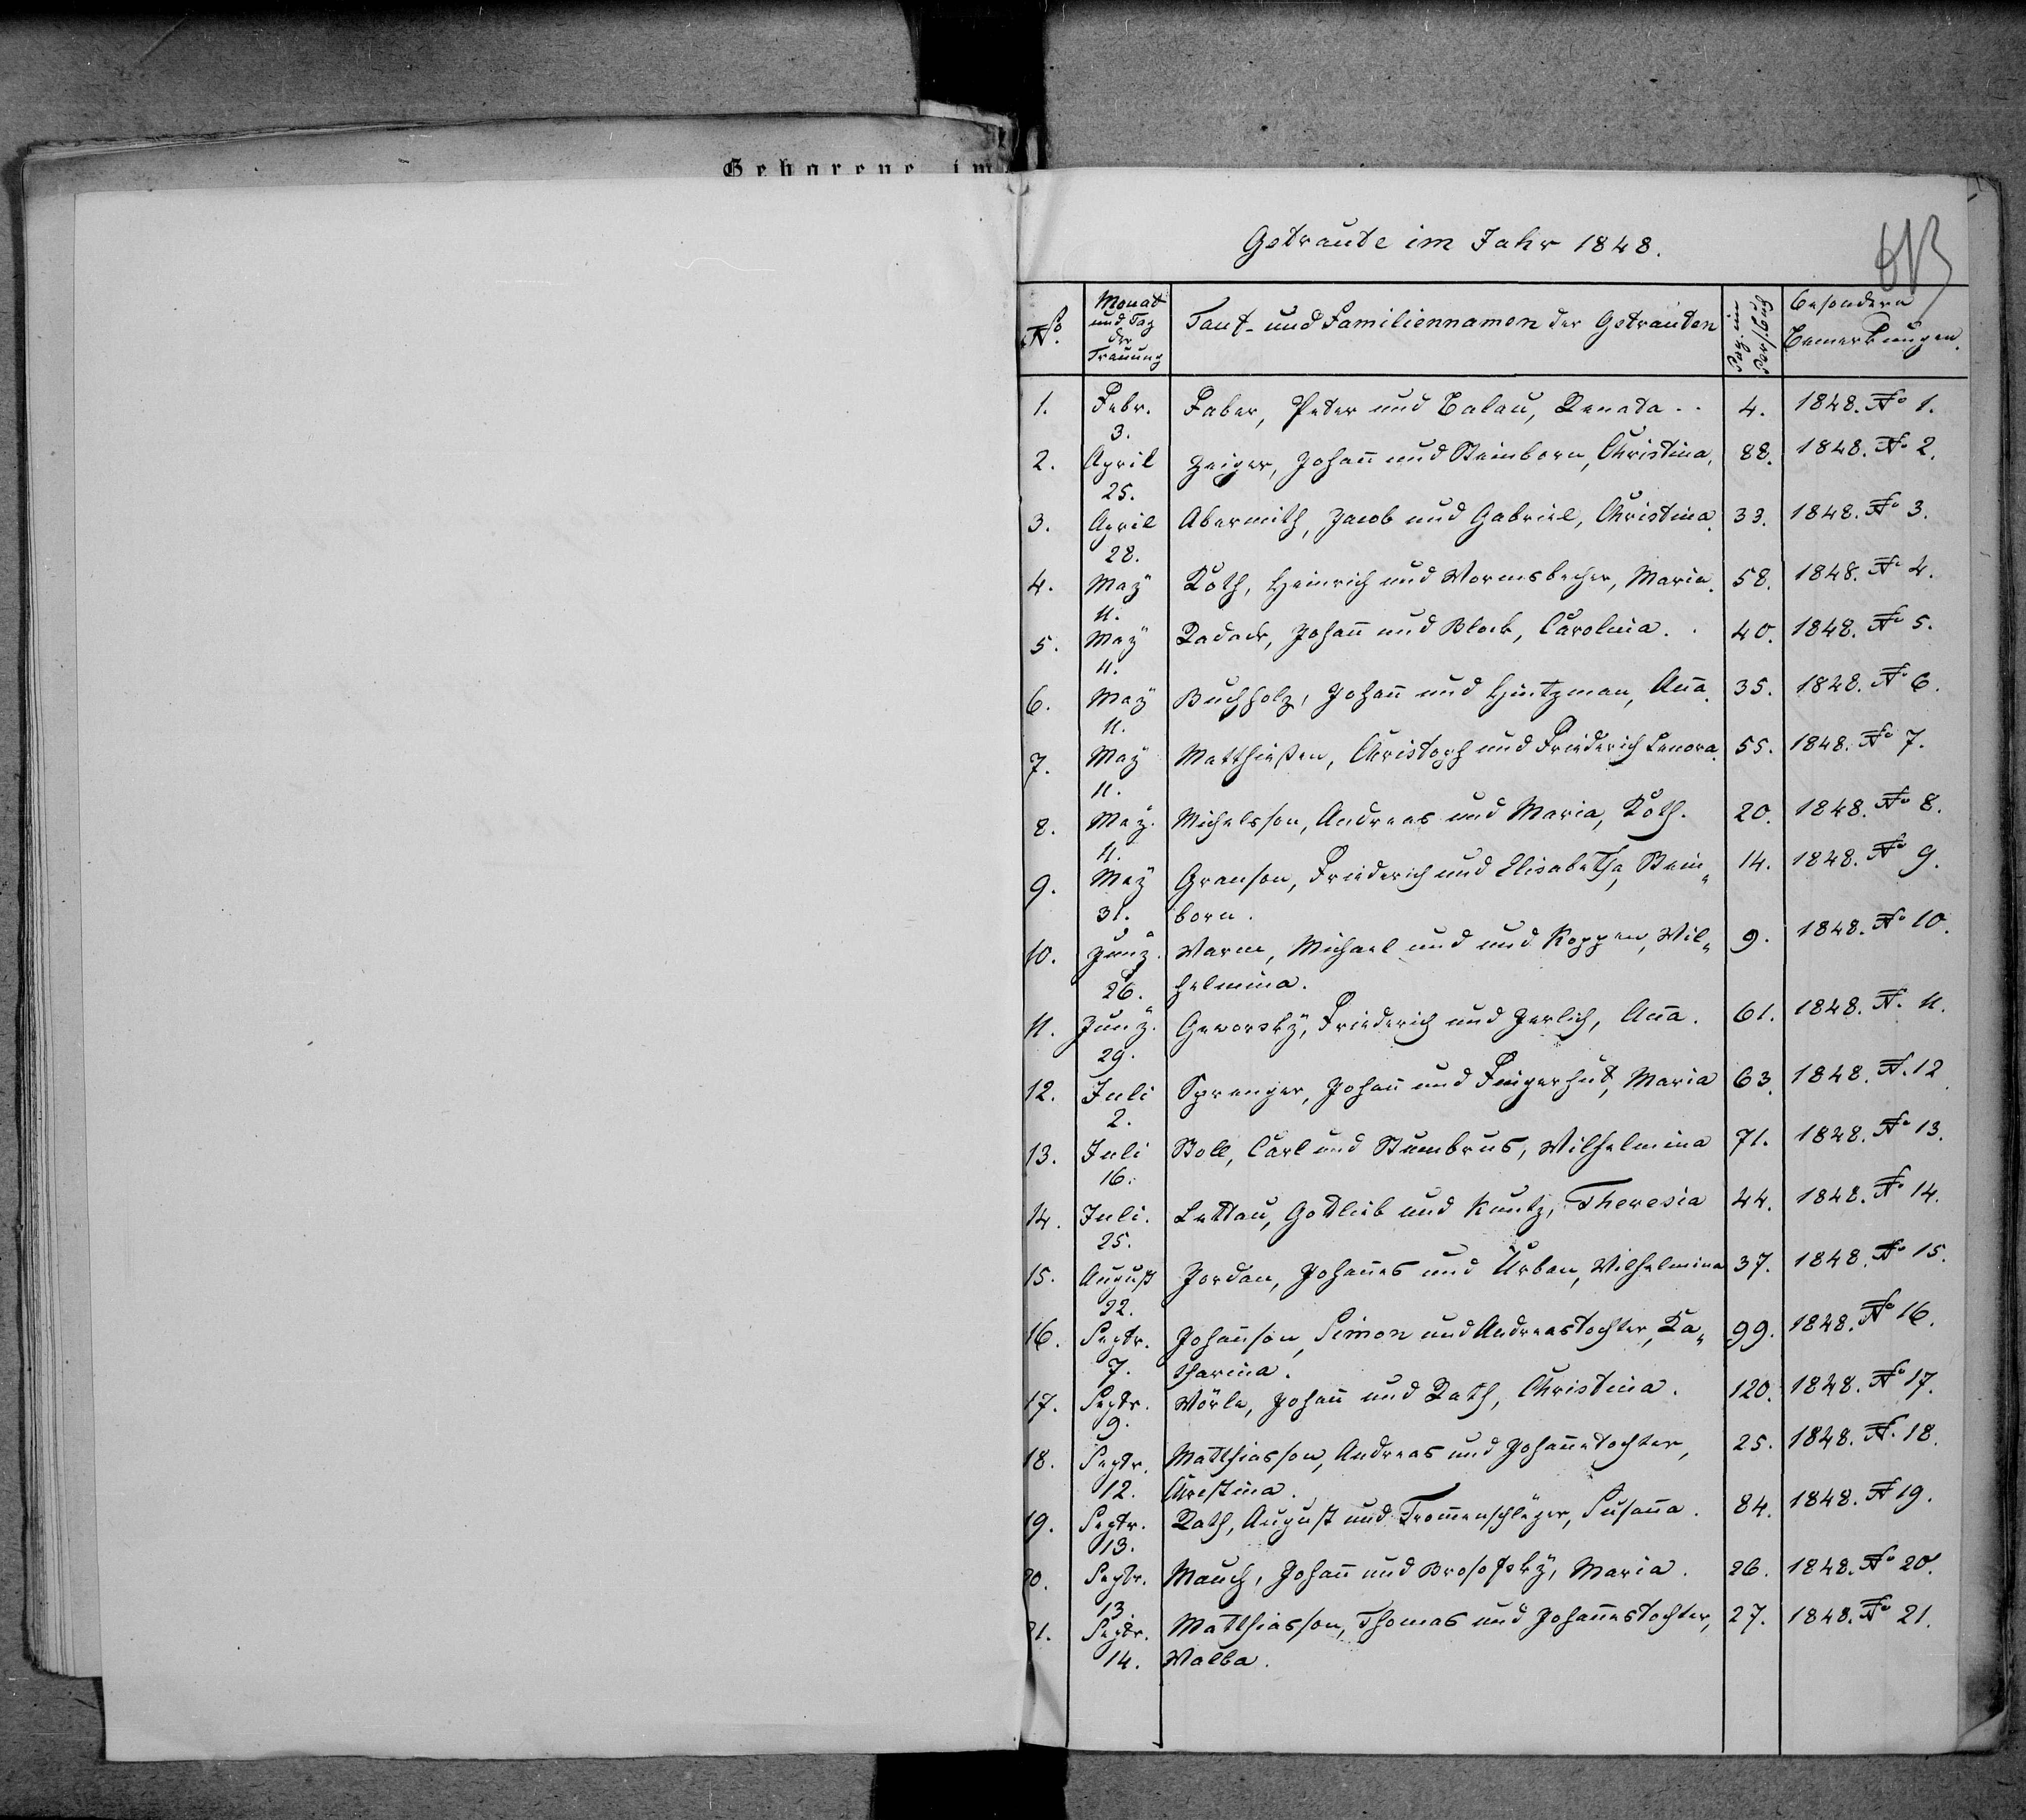 Geborene im
Getraute im Jahr 1848.
No. Monat und Tag der Trauung Tauf- und Familiennamen der Getrauten Pag. im Pers. Buch besondere Bemerkungen.
1. Febr. 3. Faber, Peter und Balau, Renata . . 4. 1848. No 1.
2. April 25. Geiger, Johann und Steinborn, Christina. 88. 1848. No 2.
3. April 28. Abermith, Jacob und Gabriel, Christina. 33. 1848. No 3.
4. May 11. Roth, Heinrich und Wormsbecher, Maria. 58. 1848. No 4.
5. May 11. Radack, Johann und Block, Carolina. . 40. 1848. No 5.
6. May 11. Buchholz, Johann und Hintzman, Anna. 35. 1848. No 6.
7. May 11. Matthießen, Christoph und Friederich Lenora. 55. 1848. No 7.
8. May. 11. Michelsson, Andreas und Maria, Roth. 20. 1848. No 8.
9. May 31. Granson, Friederich und Elisabetha, Stein-
born. 14. 1848. No 9.
10. Juny. 26. Warm, Michael und und Koppen, Wil-
helmina. 9. 1848. No 10.
11. Juny. 29. Geworsky, Friederich und Gerlich, Anna. 61. 1848. No. 11.
12. Juli 2. Sprenger, Johann und Fingerhut, Maria 63. 1848. No. 12
13. Juli 16. Boll, Carl und Stumbrus, Wilhelmina 71. 1848. No 13.
14. Juli. 25. Lettau, Gottlieb und Kuntz, Theresia 44. 1848. No 14.
15. August 22. Jordan, Johannes und Urban, Wilhelmina 37. 1848. No 15.
16. Septr. 7. Johannson, Simon und Andreastochter, Ka-
tharina. 99. 1848. No 16.
17. Septr. 9. Wörle, Johann und Rath, Christina. 120. 1848. No 17.
18. Septr. 12. Matthiasson, Andreas und Johannetochter,
Chrestina. 25. 1848. No. 18.
19. Septr. 13. Rath, August und Trommenschläger, Susanna. 84. 1848. No 19.
20. Septr. 13. Mauch, Johann und Brosofsky, Maria. 26. 1848. No 20.
21. Septr. 14. Matthiasson, Thomas und Johannestochter,
Walba. 27. 1848. No 21.